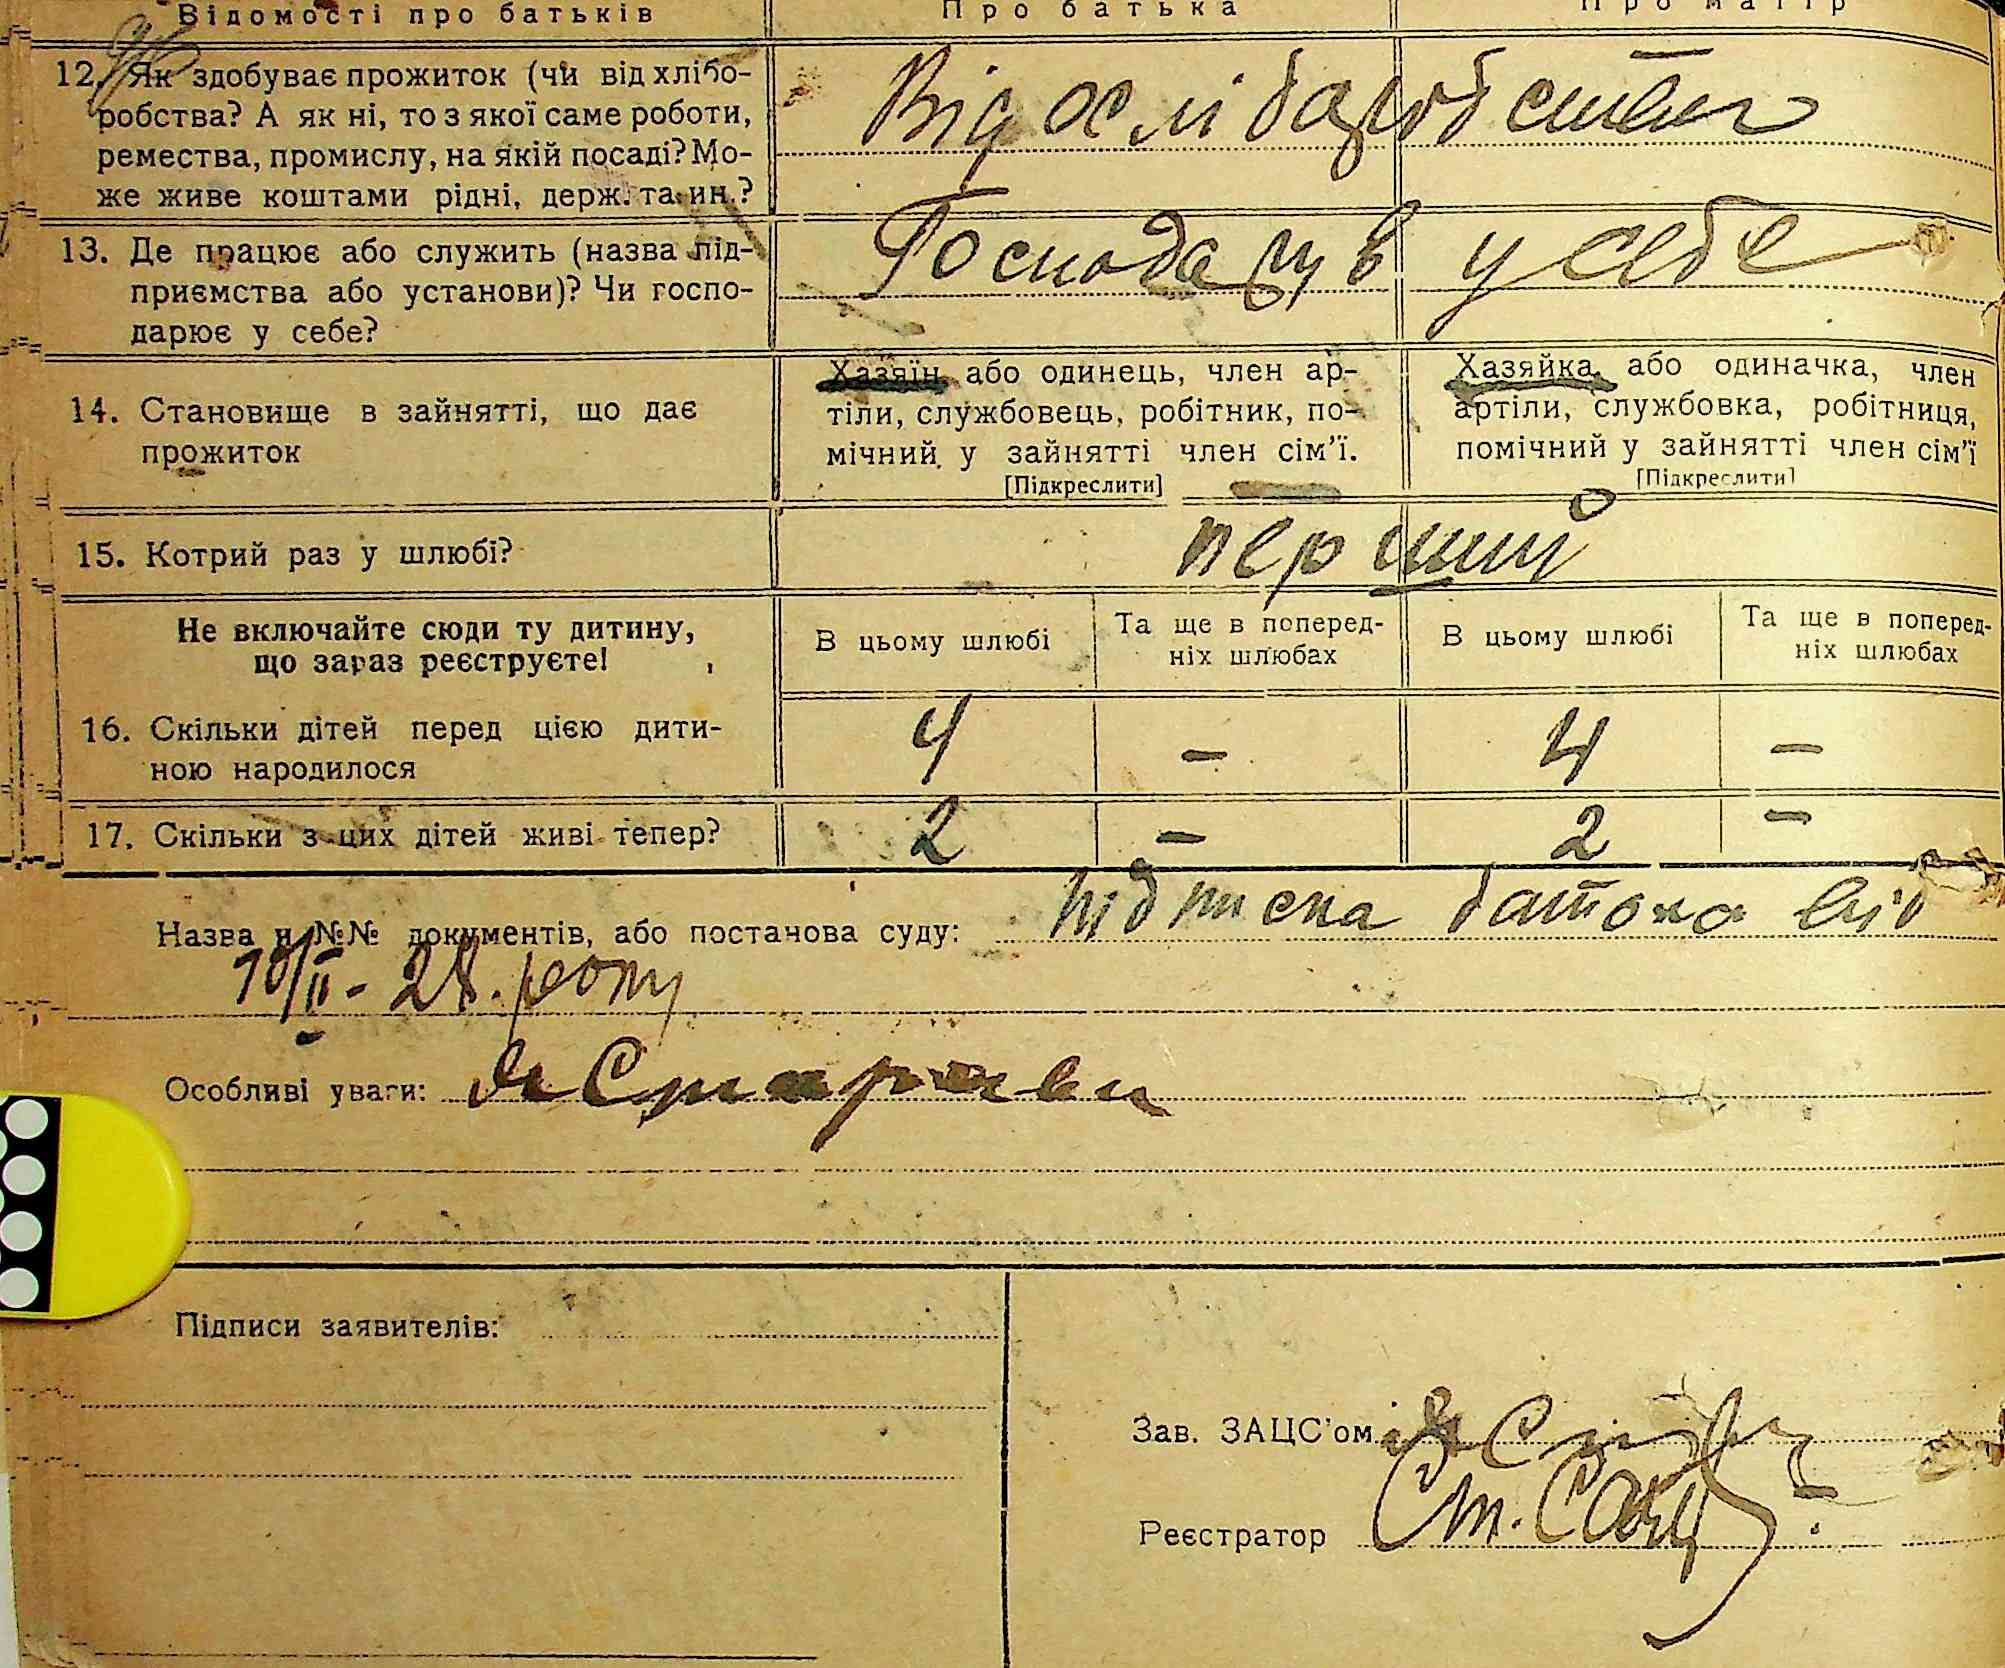 Відомості про батьків Про батька Про матір
12. Як здобуває прожиток (чи від хлібо-
робства? А як ні, то з якої саме роботи,
ремества, промислу, на якій посаді? Мо-
же живе коштами рідні, держ. та ин.?
Від хліборобства
13. Де працює або служить (назва під-
приємства або установи)? Чи госпо-
дарює у себе?
у себе
14. Становище в зайнятті, що дає
прожиток
Хазяїн або одинець, член ар-
тіли, службовець, робітник, по-
мічний у зайнятті член сім'ї.
[Підкреслити]
Хазяйка або одиначка, член
артіли, службовка, робітниця,
помічний у зайнятті член сім'ї
[Підкреслити]
15. Котрий раз у шлюбі? перший
Не включайте сюди ту дитину,
що зараз реєструєте!
В цьому шлюбі
Та ще в поперед-
ніх шлюбах
В цьому шлюбі
Та ще в поперед-
ніх шлюбах
16. Скільки дітей перед цією дити-
ною народилося
4 – 4 –
17. Скільки з цих дітей живі тепер? 2 – 2 –
Назва и №№ документів, або постанова суду: підписка батька від
10/II - 28. року
Особливі уваги:
Підписи заявителів:
Зав. ЗАЦС'ом
Реєстратор